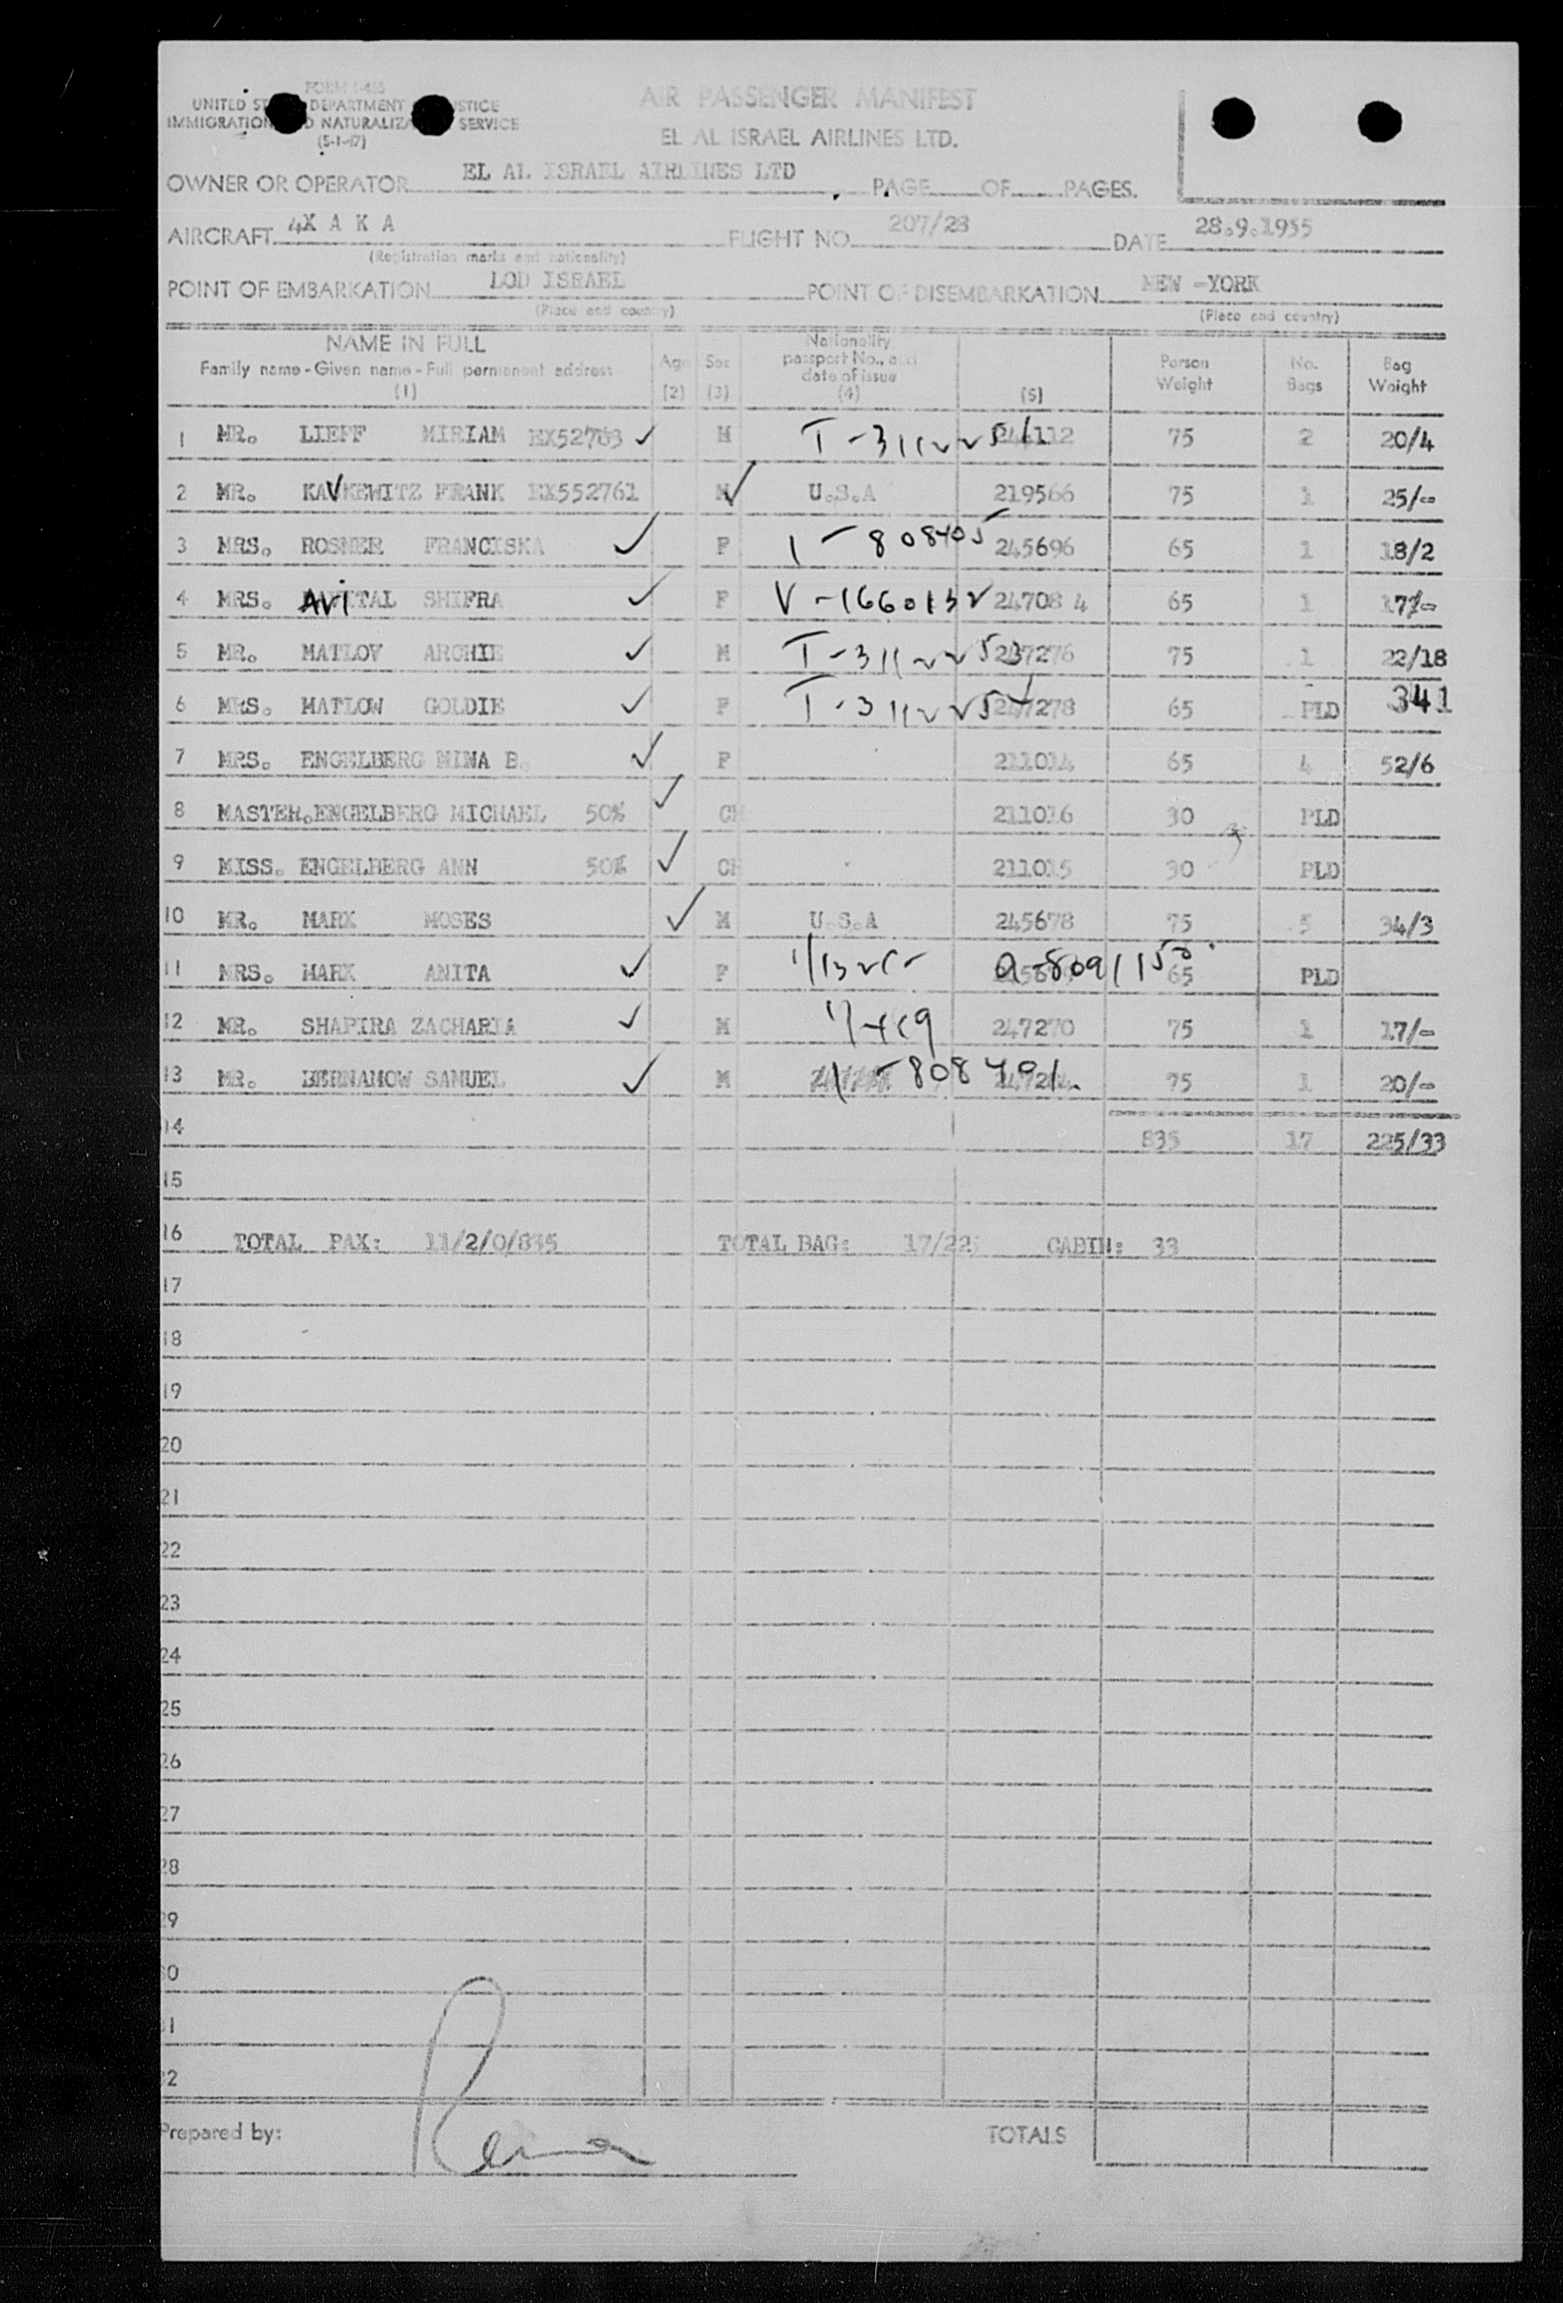 FORM I-466
UNITED ST DEPARTMENT STICE
IMMIGRATION D NATURALIZA SERVICE
(5-1-47)
AIR PASSENGER MANIFEST
EL AL ISRAEL AIRLINES LTD.
OWNER OR OPERATOR EL AL ISRAEL AIRLINES LTD PAGE OF PAGES.
AIRCRAFT 4X A K A FLIGHT NO. 207/28 DATE 28.9.1955
(Registration marks and nationality)
POINT OF EMBARKATION LOD ISRAEL POINT OF DISEMBARKATION NEW -YORK
(Place and country) (Place and country)
NAME IN FULL
Family name - Given name - Full permanent address
(1)
Age
(2)
Sex
(3)
Nationality
passport No., and
date of issue
(4)
(5)
Person
Weight
No.
Bags
Bag
Weight
1 MR. LIEFF MIRIAM EX52783 ✓ M T-3112251 75 2 20/4
2 MR. KAVKEWITZ FRANK EX552761 M ✓ U.S.A 219566 75 1 25/-
3 MRS. ROSNER FRANCISKA ✓ F 1-808405 245696 65 1 18/2
4 MRS. AVITAL SHIFRA ✓ F V-1660132 247084 65 1 17/-
5 MR. MATLOV ARCHIE ✓ M T-3112253 247276 75 1 22/18
6 MRS. MATLOW GOLDIE ✓ F T-3112254 247278 65 PLD 341
7 MRS. ENGELBERG MINA B. ✓ F 211014 65 4 52/6
8 MASTER.ENGELBERG MICHAEL 50% ✓ CH 211016 30 PLD
9 MISS. ENGELBERG ANN 50% ✓ CH 211015 30 PLD
10 MR. MARX MOSES ✓ M U.S.A 245678 75 5 34/3
11 MRS. MARX ANITA ✓ F a-8091150 65 PLD
12 MR. SHAPIRA ZACHARIA ✓ M 247270 75 1 17/-
13 MR. BERNAMOW SAMUEL ✓ M -808401 75 1 20/-
14 835 17 225/33
15
16 TOTAL PAX: 11/2/0/835 TOTAL BAG: 17/225 CABIN: 33
17
18
19
20
21
22
23
24
25
26
27
28
29
30
31
32
Prepared by: TOTALS